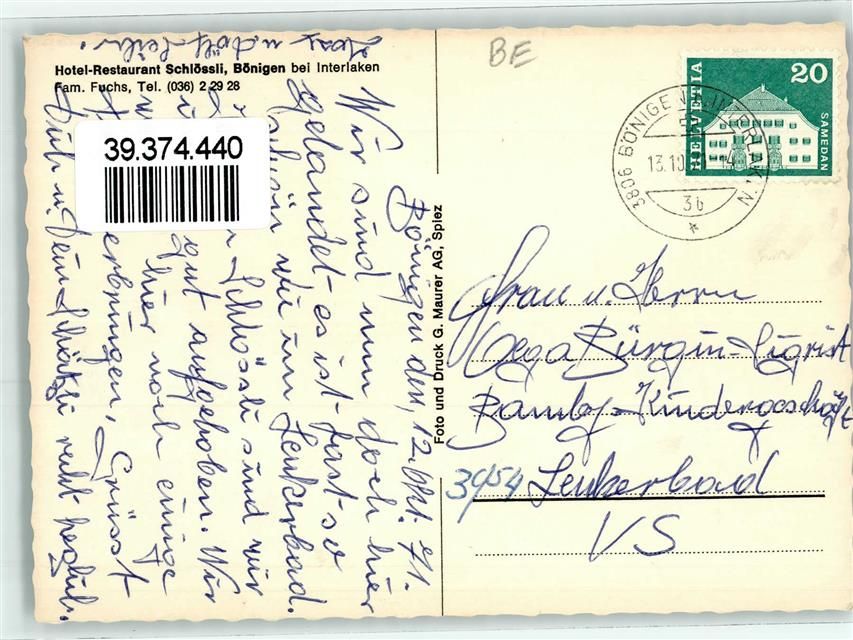 Hotel-Restaurant Schlössli, Bönigen bei Interlaken
Fam. Fuchs, Tel. (036) 2 29 28
39.374.440
Bönigen den, 12. Okt. 71.
Wir sind nun doch hier
gelandet, es ist fast so
schön wie im Leukerbad.
Schlössli sind wir
gut aufgehoben. Wir
hier noch einige
erbringen, Grüsst
Dich u. Dein Schätzli recht herzlich.
u. Dölf
Foto und Druck G. Maurer AG, Spiez
BE
HELVETIA
20
SAMEDAN
3806 BÖNIGEN B. INTERLAKEN
13.10. 71-14
3b
Frau u. Herrn
Vega Bürgin-Sigrist
Bamby-Kinderg'schäft
3954 Leukerbad
VS